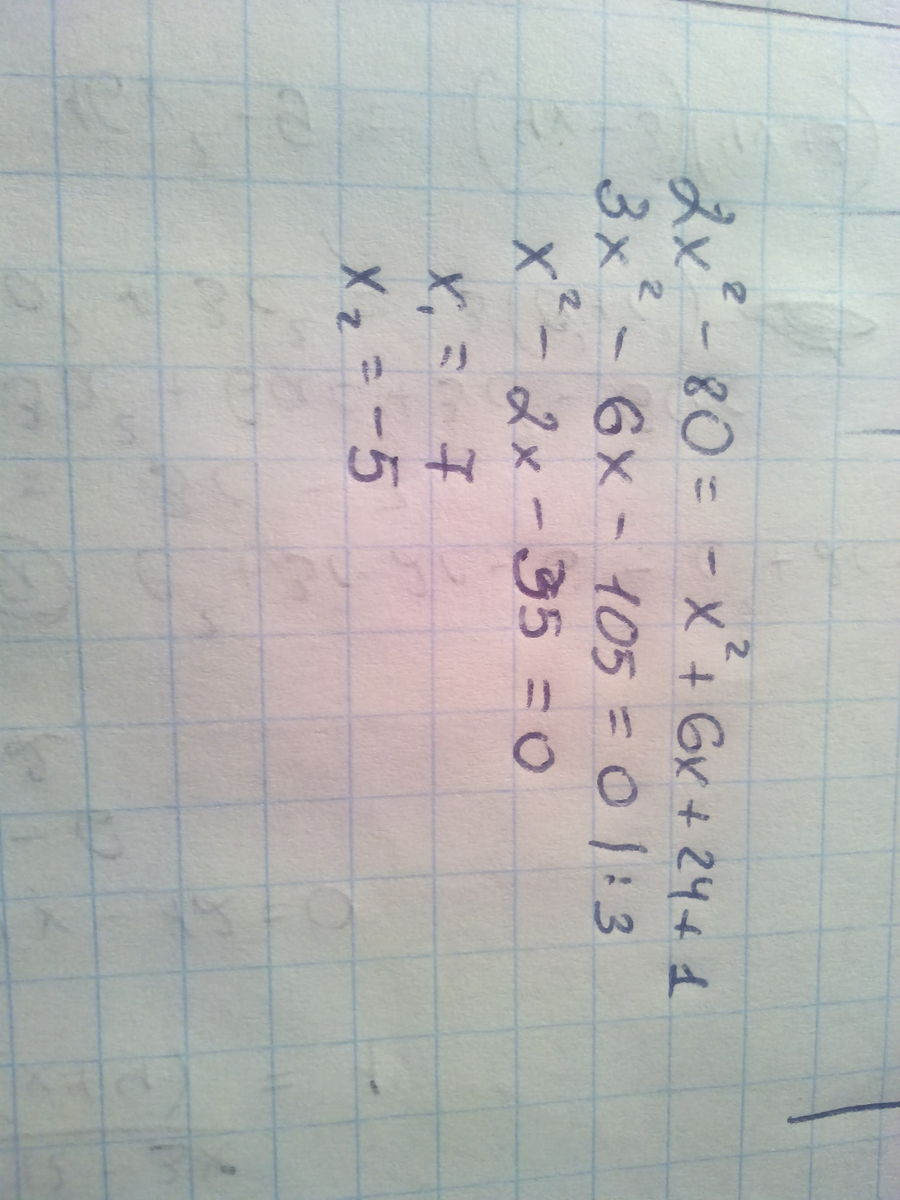 2x² - 80 = -x² + 6x + 24 + 1
3x² - 6x - 105 = 0 | : 3
x² - 2x - 35 = 0
x₁ = 7
x₂ = -5